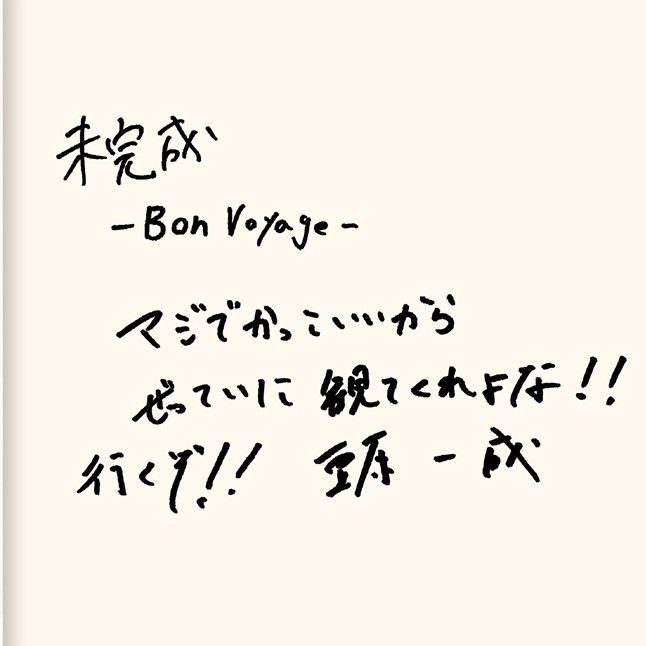 未完成
-Bon Voyage-
マジでかっこいいから
ぜっていに観てくれよな!!
行くぞ!! 豆原 一成